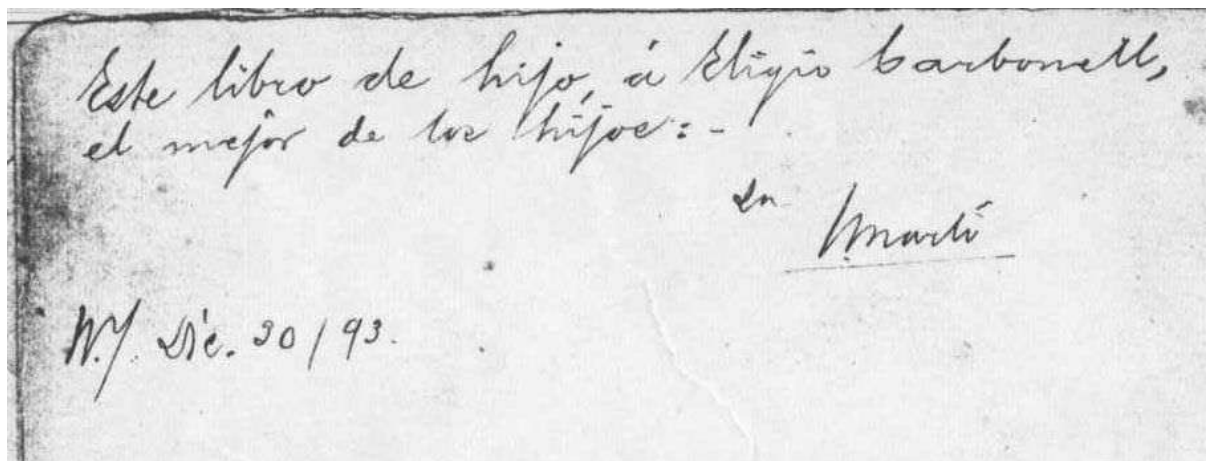 Este libro de hijo, á Eligio Carbonell,
el mejor de los hijos:-
Su
J. Martí
N.Y. Dic. 30/93.